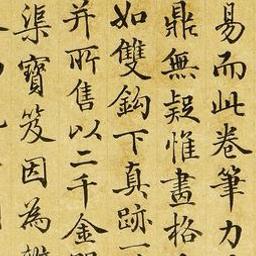 易而此卷筆力
鼎無疑惟畫格
如雙鈎下真跡一
并所售以二千金
渠寶笈因為